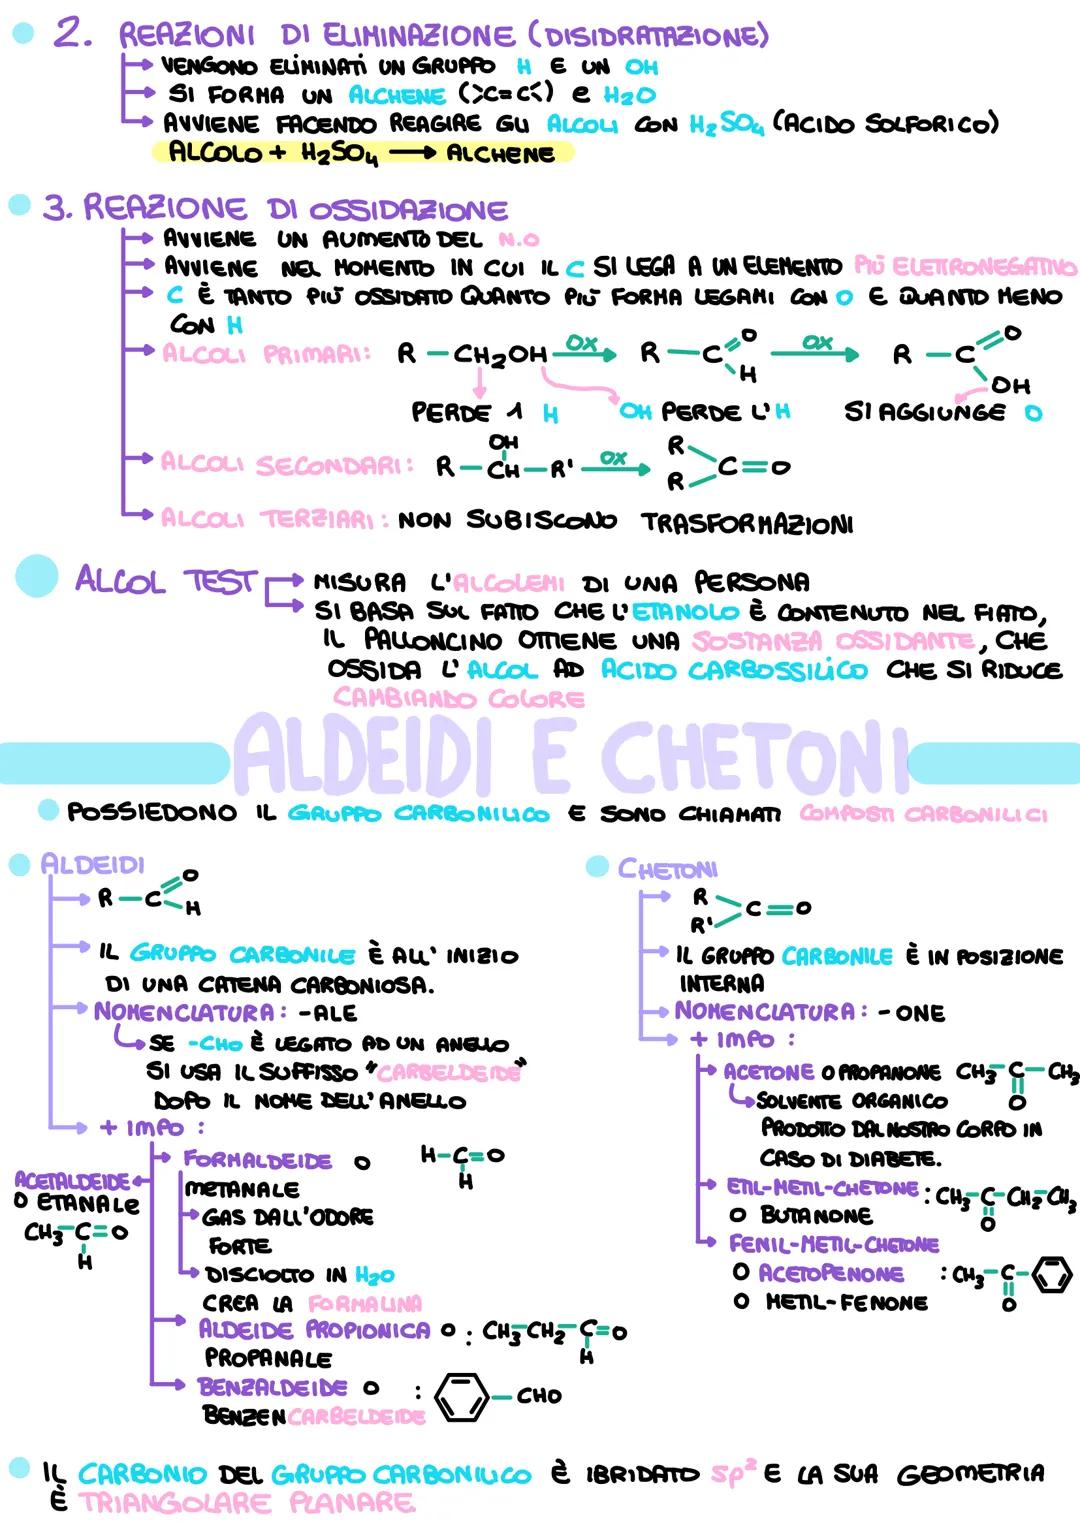 2. REAZIONI DI ELIMINAZIONE (DISIDRATAZIONE)
VENGONO ELIMINATI UN GRUPPO H E UN OH
SI FORMA UN ALCHENE (>C=C<) e H2O
AVVIENE FACENDO REAGIRE GLI ALCOLI CON H2SO4 (ACIDO SOLFORICO)
ALCOLO + H2SO4 → ALCHENE
3. REAZIONE DI OSSIDAZIONE
AVVIENE UN AUMENTO DEL N.O
AVVIENE NEL MOMENTO IN CUI IL C SI LEGA A UN ELEMENTO PIÙ ELETTRONEGATIVO
C È TANTO PIÙ OSSIDATO QUANTO PIÙ FORMA LEGAMI CON O E QUANTO MENO
CON H
ALCOLI PRIMARI: R — CH2OH OX → R — C =O H OX → R — C =O OH
PERDE 1 H OH PERDE L'H SI AGGIUNGE O
OH
ALCOLI SECONDARI: R — CH — R' OX → R R C=O
ALCOLI TERZIARI: NON SUBISCONO TRASFORMAZIONI
ALCOL TEST → MISURA L'ALCOLEMI DI UNA PERSONA
SI BASA SUL FATTO CHE L'ETANOLO È CONTENUTO NEL FIATO,
IL PALLONCINO OTTIENE UNA SOSTANZA OSSIDANTE, CHE
OSSIDA L'ALCOL AD ACIDO CARBOSSILICO CHE SI RIDUCE
CAMBIANDO COLORE
ALDEIDI E CHETONI
POSSIEDONO IL GRUPPO CARBONILICO E SONO CHIAMATI COMPOSTI CARBONILICI
ALDEIDI
R — C =O H
IL GRUPPO CARBONILE È ALL'INIZIO
DI UNA CATENA CARBONIOSA.
NOMENCLATURA: -ALE
SE -CHO È LEGATO AD UN ANELLO
SI USA IL SUFFISSO "CARBELDEIDE"
DOPO IL NOME DELL'ANELLO
+ IMPO :
FORMALDEIDE O
METANALE
H-C=O
H
GAS DALL'ODORE
FORTE
DISCIOLTO IN H2O
CREA LA FORMALINA
ACETALDEIDE
O ETANALE
CH3-C=O
H
ALDEIDE PROPIONICA O : CH3-CH2-C=O
PROPANALE H
BENZALDEIDE O : — CHO
BENZENCARBELDEIDE
CHETONI
R
R' C=O
IL GRUPPO CARBONILE È IN POSIZIONE
INTERNA
NOMENCLATURA: -ONE
+ IMPO :
ACETONE O PROPANONE CH3-C-CH3
O
SOLVENTE ORGANICO
PRODOTTO DAL NOSTRO CORPO IN
CASO DI DIABETE.
ETIL-METIL-CHETONE : CH3-C-CH2-CH3
O BUTANONE O
FENIL-METIL-CHETONE
O ACETOPENONE : CH3-C-
O METIL-FENONE O
IL CARBONIO DEL GRUPPO CARBONILICO È IBRIDATO sp2 E LA SUA GEOMETRIA
È TRIANGOLARE PLANARE.